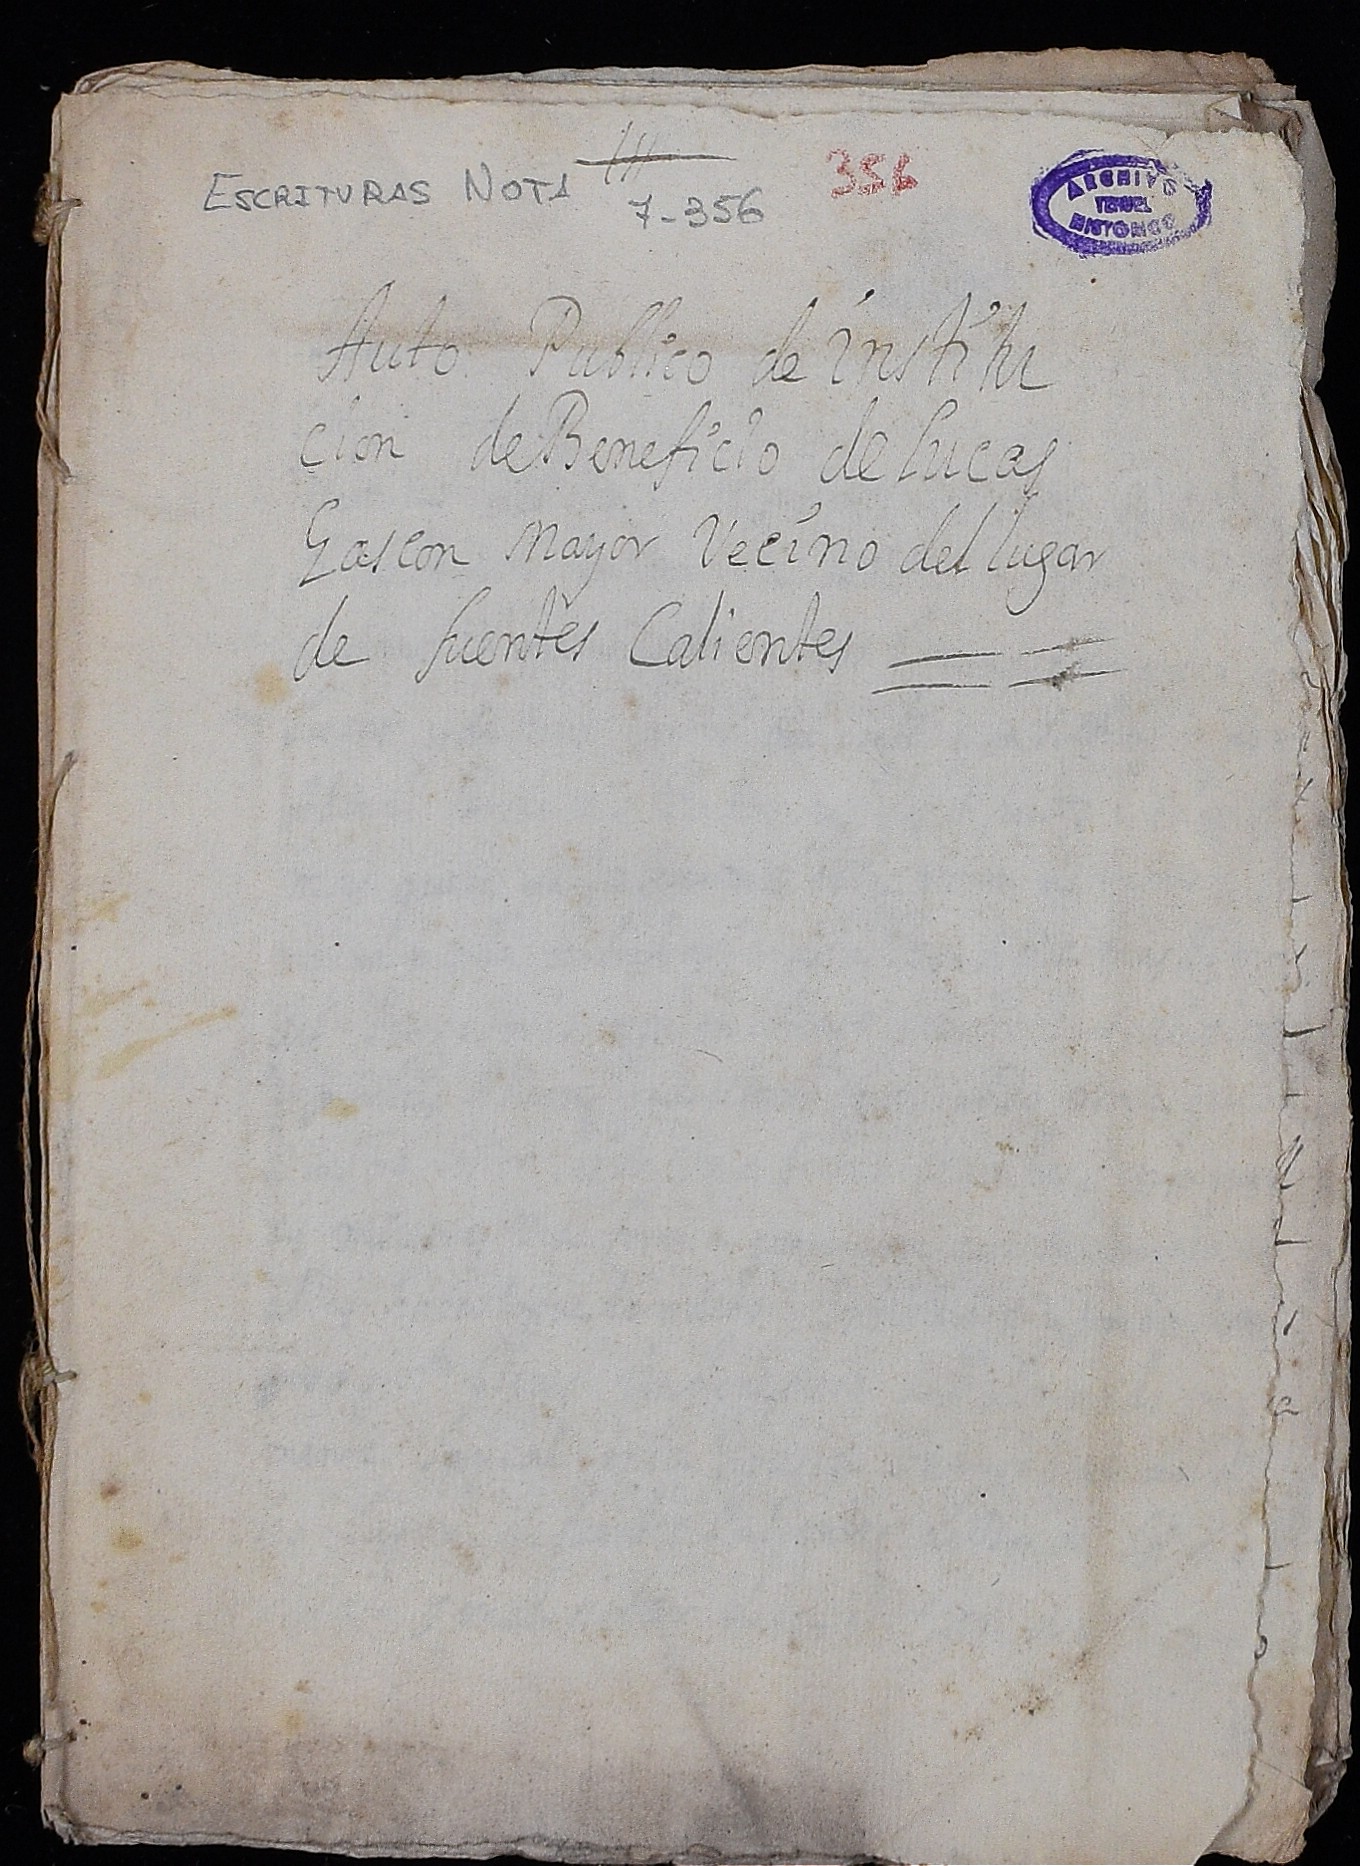 ESCRITURAS NOTA
7-356
356
ARCHIVO
TERUEL
HISTÓRICO
Auto Publico de institu
cion de Beneficio de Lucas
Gascon mayor Vecino del lugar
de fuentes Calientes